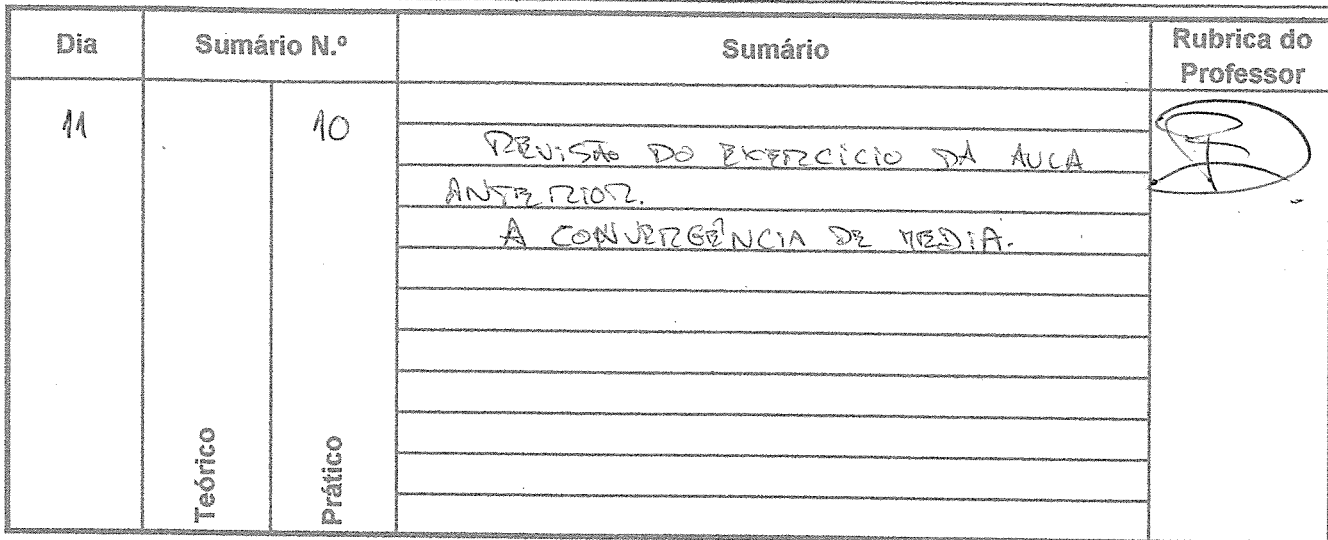 Dia Sumário N.º Sumário Rubrica do
Professor
11 10
REVISÃO DO EXERCÍCIO DA AULA
ANTERIOR.
A CONVERGÊNCIA DE MEDIA.
Teórico Prático